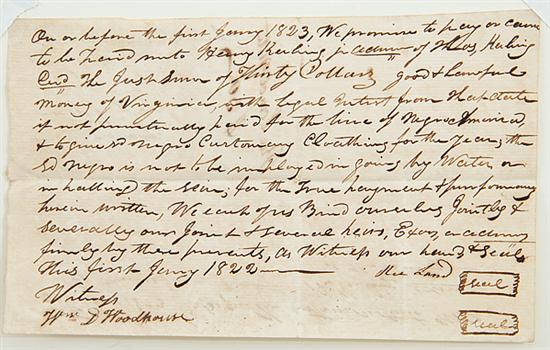 On or before the first Janry 1823, We promise to pay or cause
to be paid unto Henry Keeling jr admr of Thos Keeling
Decd The Just Sum of Thirty Dollars good & Lawful
money of Virginia, with legal Intrest from that date
if not punctually paid for the hire of Negro America
& to give sd Negro Customary Cloathing for the Year, the
sd Negro is not to be imployed in going by Water or
in hauling the sean, for the True payment & performance
herein written, We each of us Bind ourselves Jointly &
severally our Joint & several heirs, Exors, or admrs
firmly by these presents, as Witness our hands & Seals
this first Janry 1822
Land
seal
Witness
seal
Wm D Woodhouse